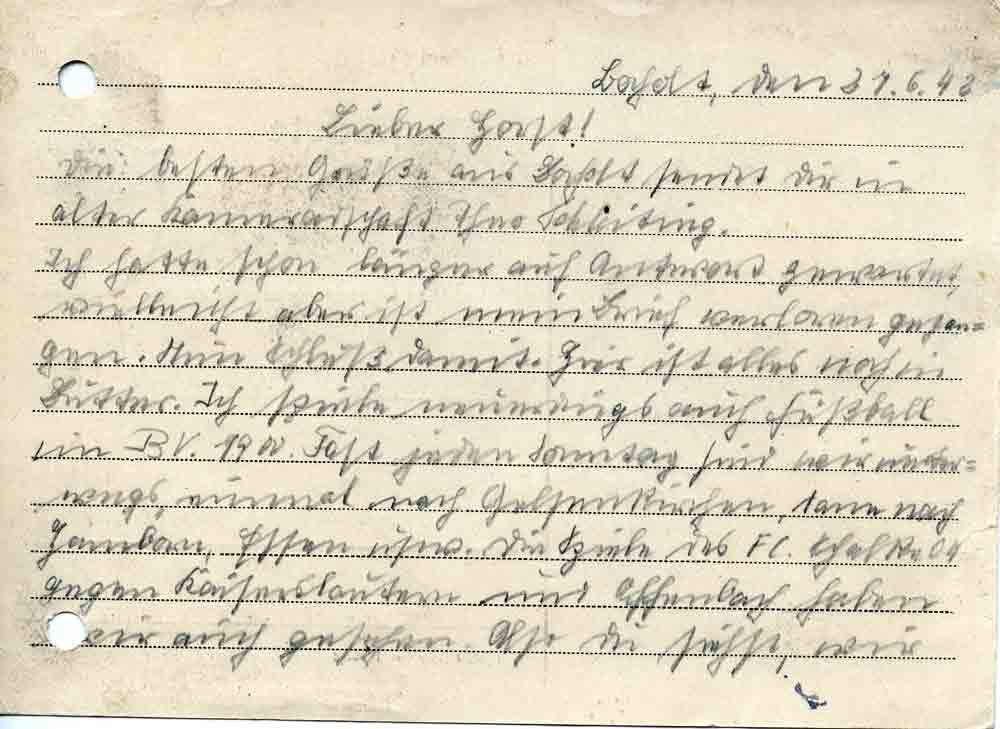 Bocholt, den 27.6.42
Lieber Horst!
Die besten Grüße aus Bocholt sendet dir in
alter Kameradschaft Theo
Ich hatte schon länger auf Antwort gewartet,
vielleicht aber ist mein Brief verloren gegan=
gen. Nun Schluß damit. Hier ist alles noch in
Butter. Ich spiele neuerdings auch Fußball
im BV. 19 Fast jeden Sonntag sind wir unter=
wegs, einmal nach Gelsenkirchen, dann nach
Hamborn, Essen usw. Die Spiele des FC. Schalke 04
gegen Kaiserslautern und Offenbach haben
wir auch gesehen. Also du siehst, wir